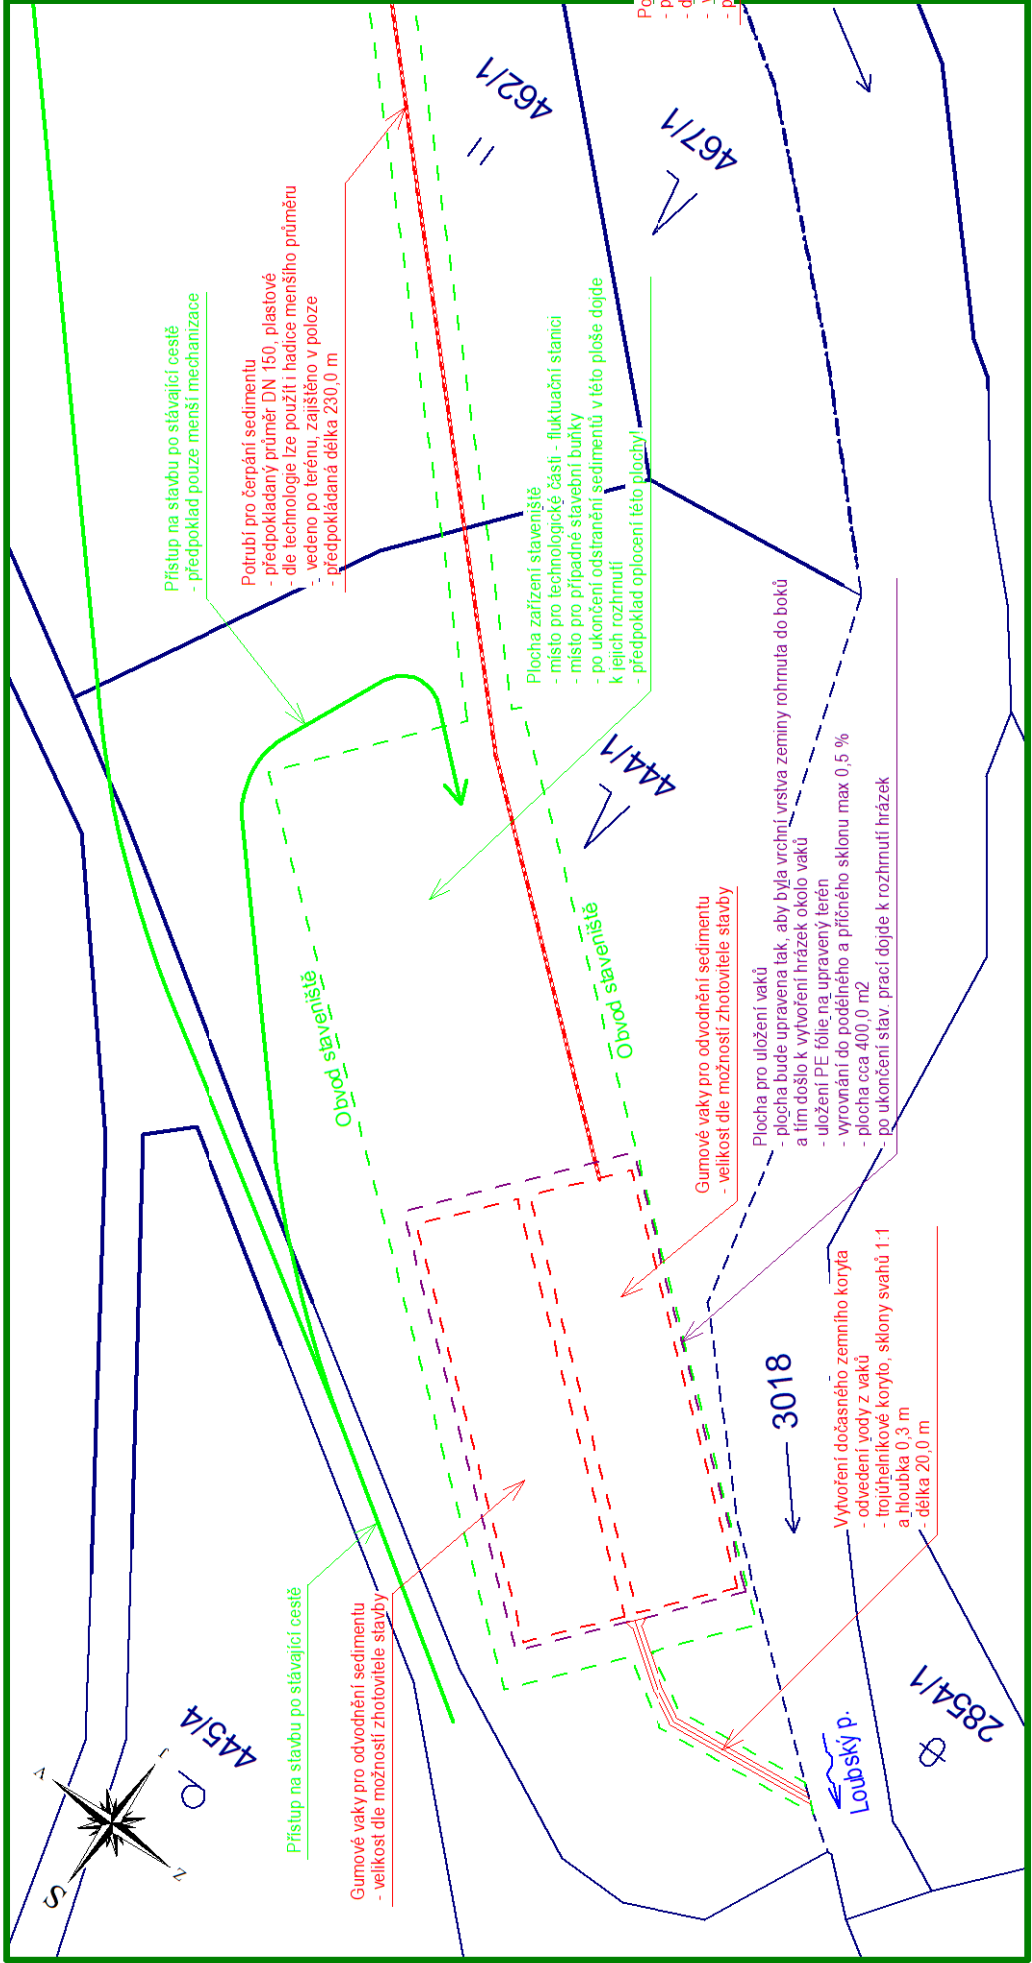 Přístup na stavbu po stávající cestě
- předpoklad pouze menší mechanizace
Potrubí pro čerpání sedimentu
- předpokladaný průměr DN 150, plastové
- dle technologie lze použít i hadice menšího průměru
- vedeno po terénu, zajištěno v poloze
- předpokládaná délka 230,0 m
Plocha zařízení staveniště
- místo pro technologické části - fluktuační stanici
- místo pro případné stavební buňky
- po ukončení odstranění sedimentů v této ploše dojde
k jejich rozhrnutí
- předpoklad oplocení této plochy!
462/1
467/1
444/1
Obvod staveniště
Obvod staveniště
Gumové vaky pro odvodnění sedimentu
- velikost dle možností zhotovitele stavby
Plocha pro uložení vaků
- plocha bude upravena tak, aby byla vrchní vrstva zeminy rohrnuta do boků
a tím došlo k vytvoření hrázek okolo vaků
- uložení PE fólie na upravený terén
- vyrovnání do podélného a příčného sklonu max 0,5 %
- plocha cca 400,0 m2
- po ukončení stav. prací dojde k rozhrnutí hrázek
Přístup na stavbu po stávající cestě
Gumové vaky pro odvodnění sedimentu
- velikost dle možností zhotovitele stavby
Vytvoření dočasného zemního koryta
- odvedení vody z vaků
- trojúhelníkové koryto, sklony svahů 1:1
a hloubka 0,3 m
- délka 20,0 m
3018
445/4
2854/1
Loubský p.
S
V
J
Z